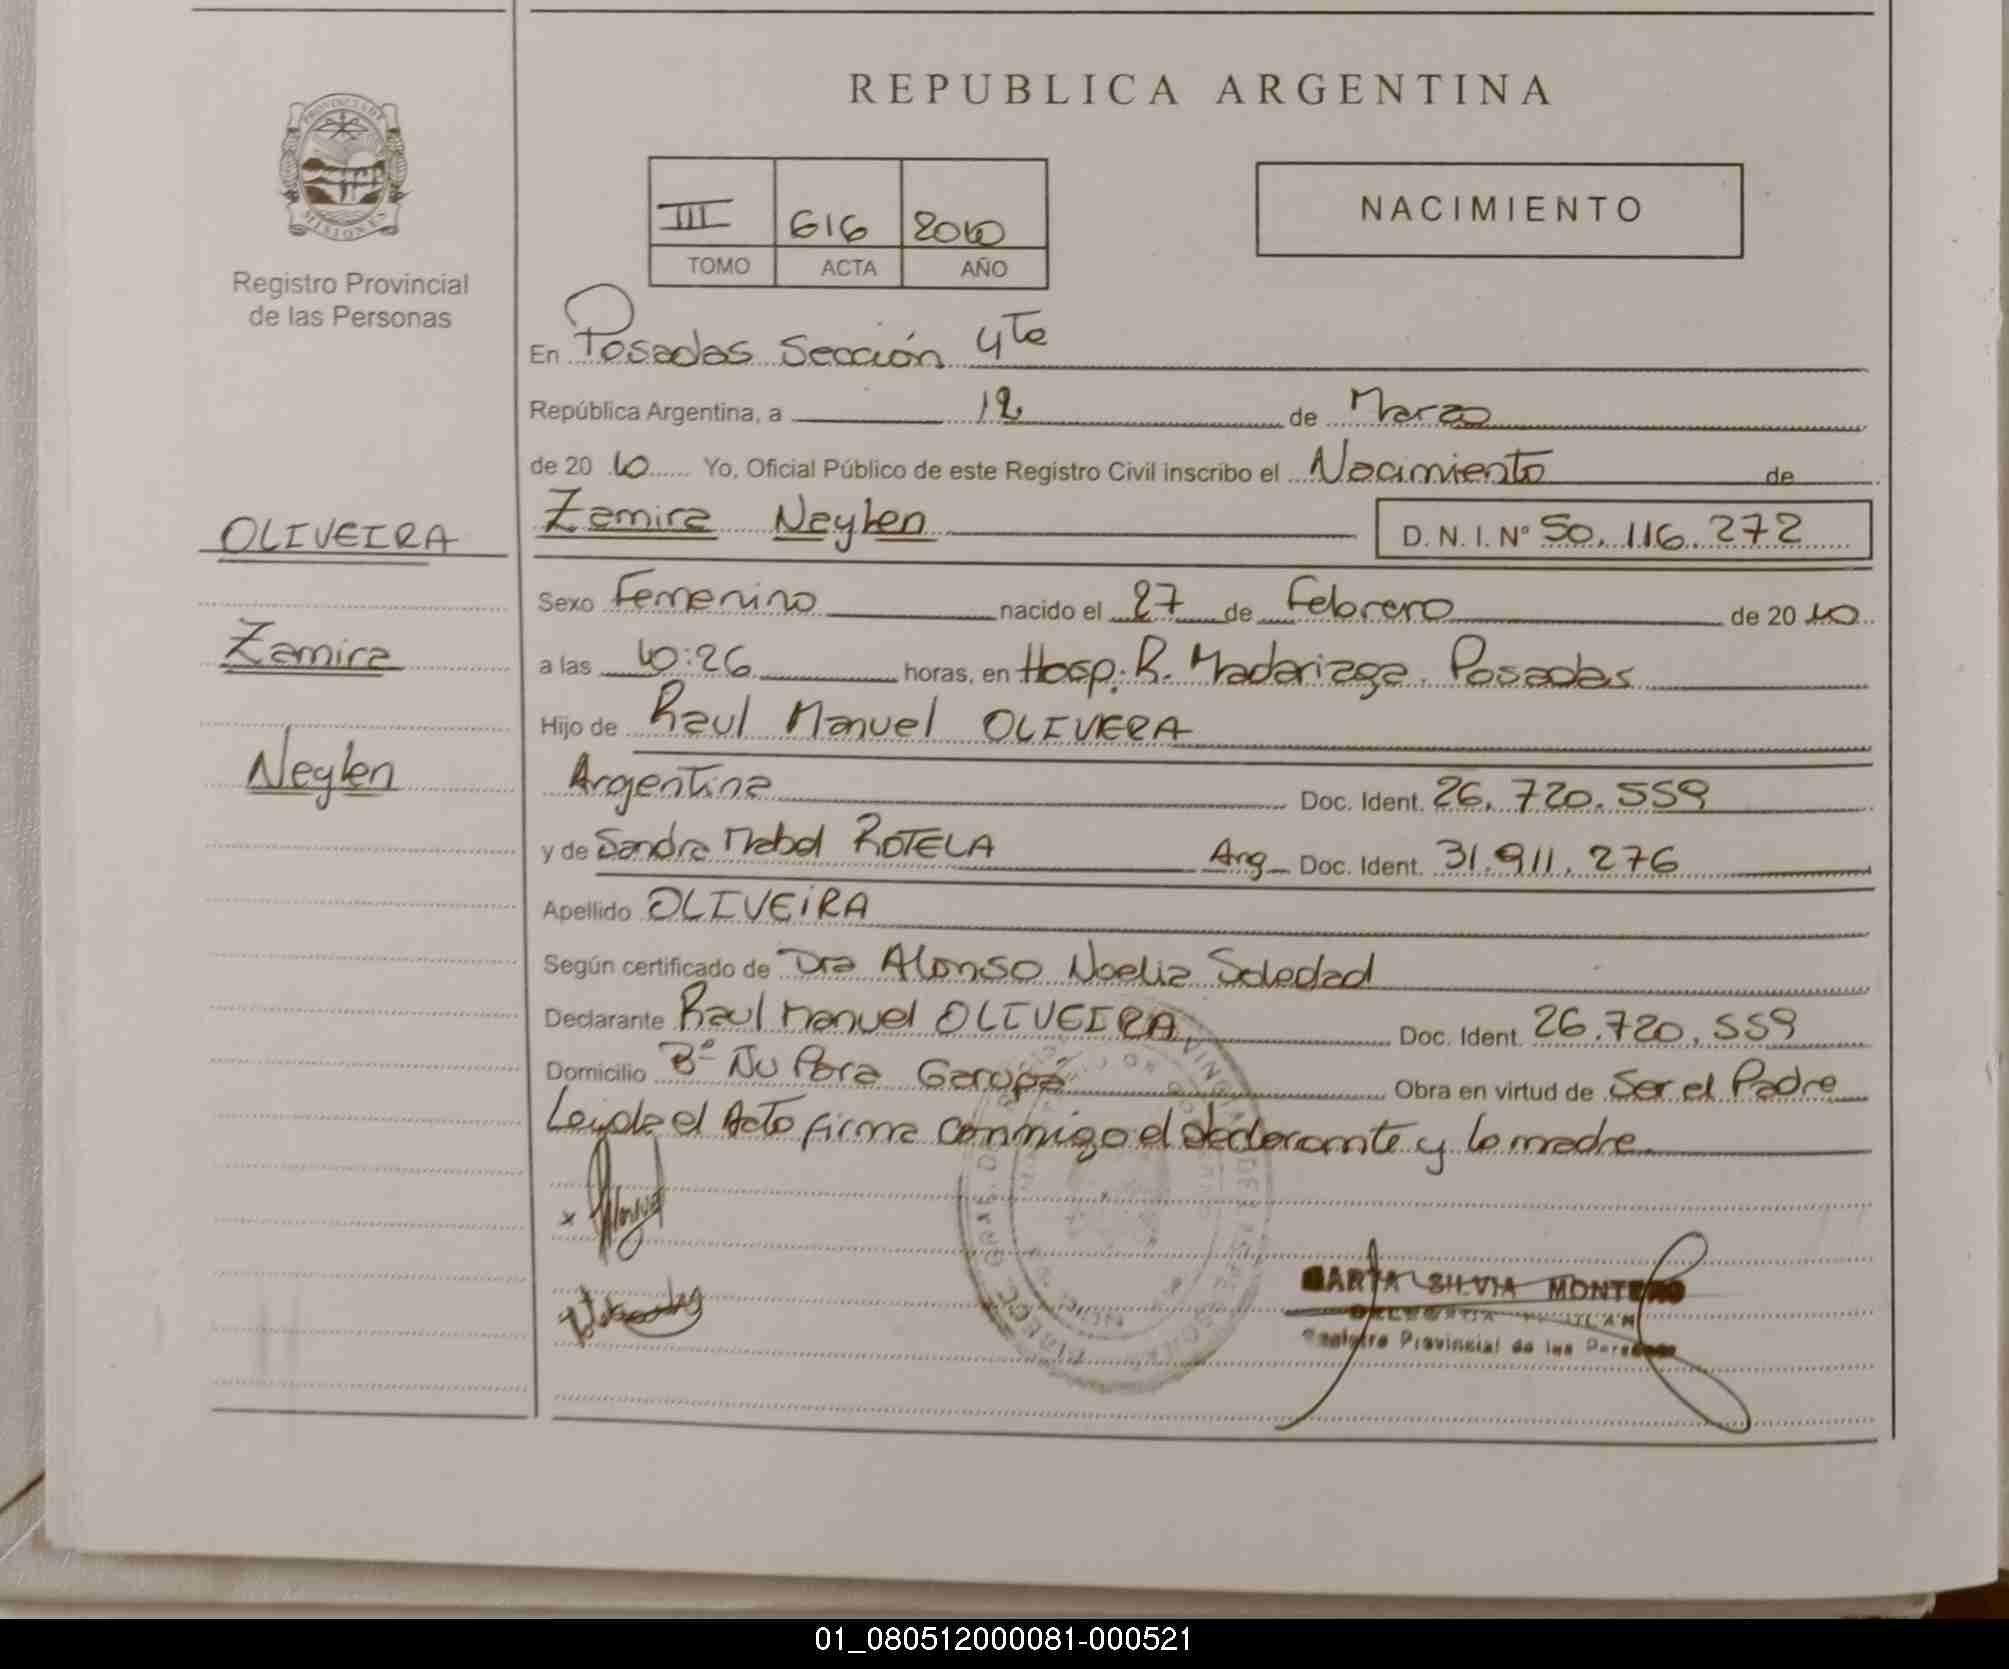 REPUBLICA ARGENTINA
PROVINCIA DE
MISIONES
Registro Provincial
de las Personas
III 616 2010
TOMO ACTA AÑO
NACIMIENTO
En Posadas Sección 4ta
República Argentina, a 12 de Marzo
de 2010 Yo, Oficial Público de este Registro Civil inscribo el Nacimiento de
OLIVEIRA
Zamira
Neylen
Zamira Neylen D.N.I. Nº 50.116.272
Sexo Femenino nacido el 27 de Febrero de 2010
a las 10:26 horas, en Hosp. R. Madariaga. Posadas
Hijo de Raul Manuel OLIVERA
Argentina Doc. Ident. 26.720.559
y de Sandra Mabel ROTELA Arg Doc. Ident. 31.911.276
Apellido OLIVEIRA
Según certificado de Dra Alonso Noelia Soledad
Declarante Raul Manuel OLIVEIRA, Doc. Ident. 26.720.559
Domicilio Bº Ñu Pora Garupá Obra en virtud de Ser el Padre
Leida el Acta firma conmigo el declarante y la madre
x
MARTA SILVIA MONTERO
Registro Provincial de las Personas
01_080512000081-000521